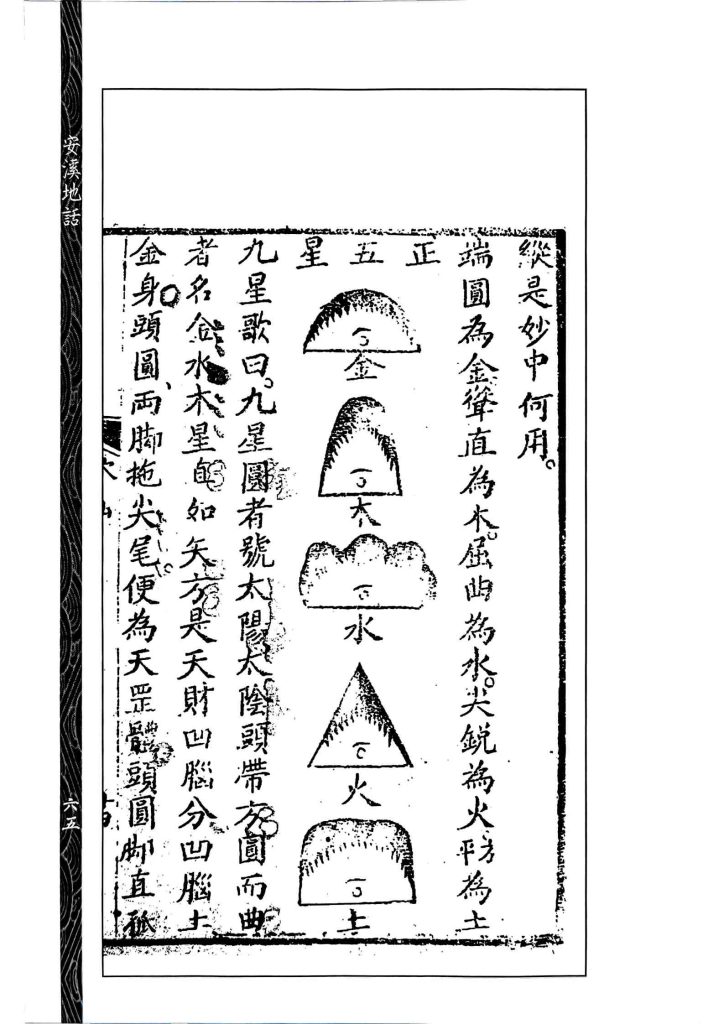 縱是妙中何用。
端圓為金聳直為木。屈曲為水。尖銳為火平方為土
正五星
金
木
水
火
土
九星歌曰。九星圓者號太陽太陰頭帶方圓而曲
者名金水木星自如矢方是天財凹腦分凹腦土
金身頭圓兩脚拖尖尾便為天罡體頭圓脚直孤
安溪地話
六五